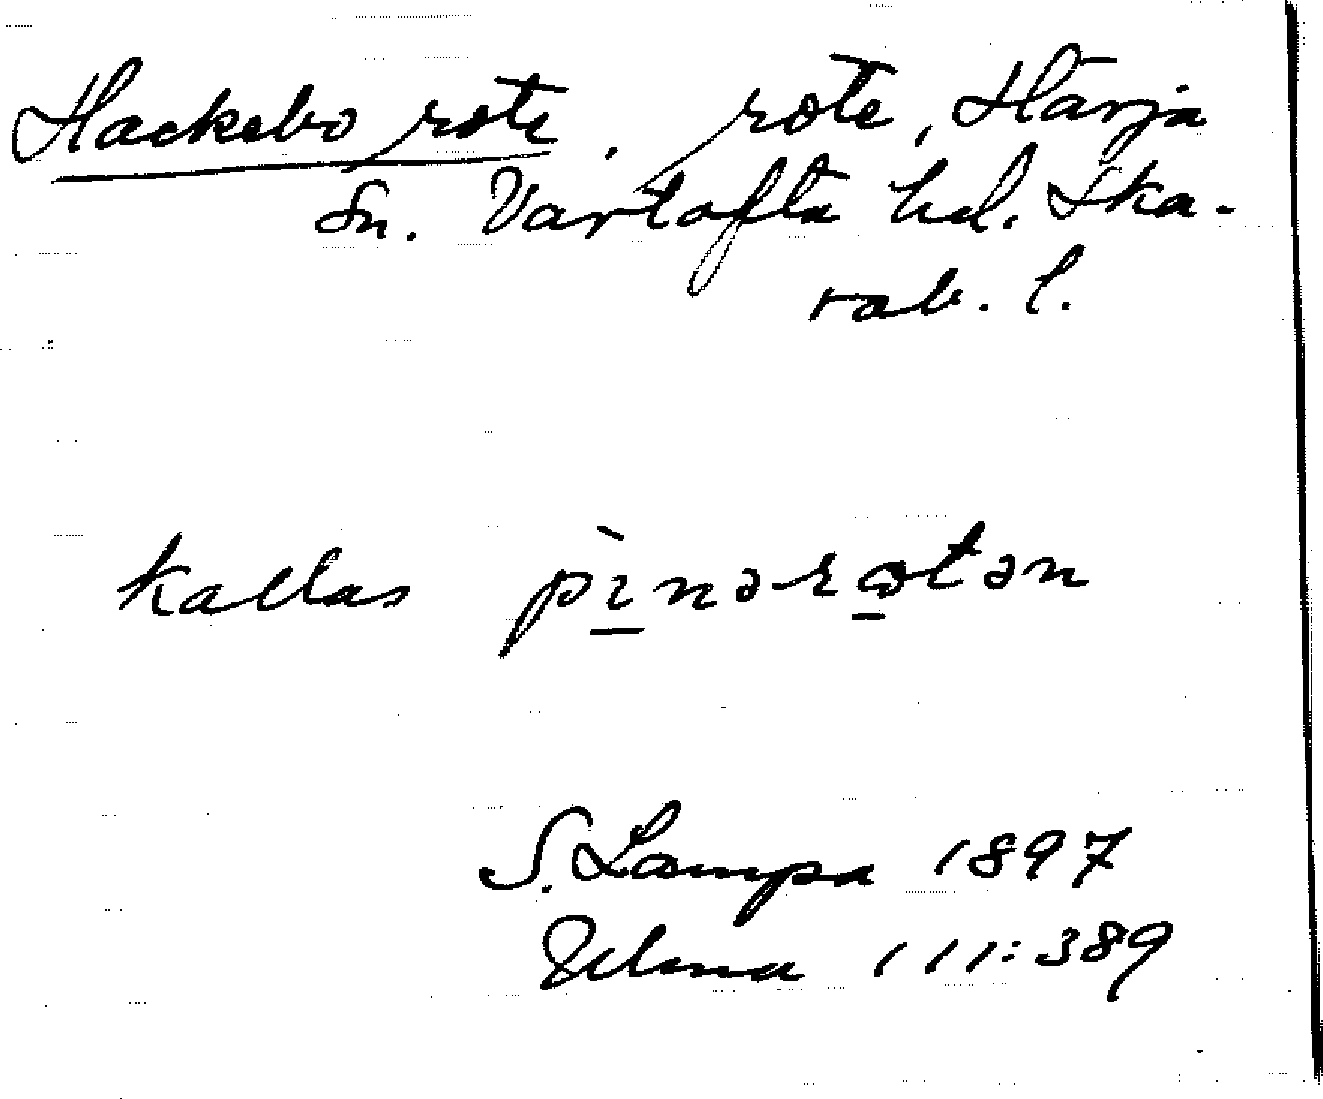 Hackebo rote. rote, Härja
sn. Vartofta hd. Ska-
rab. l.
kallas pı̀nərɷtən
S. Lampa 1897
Ulma 111:389